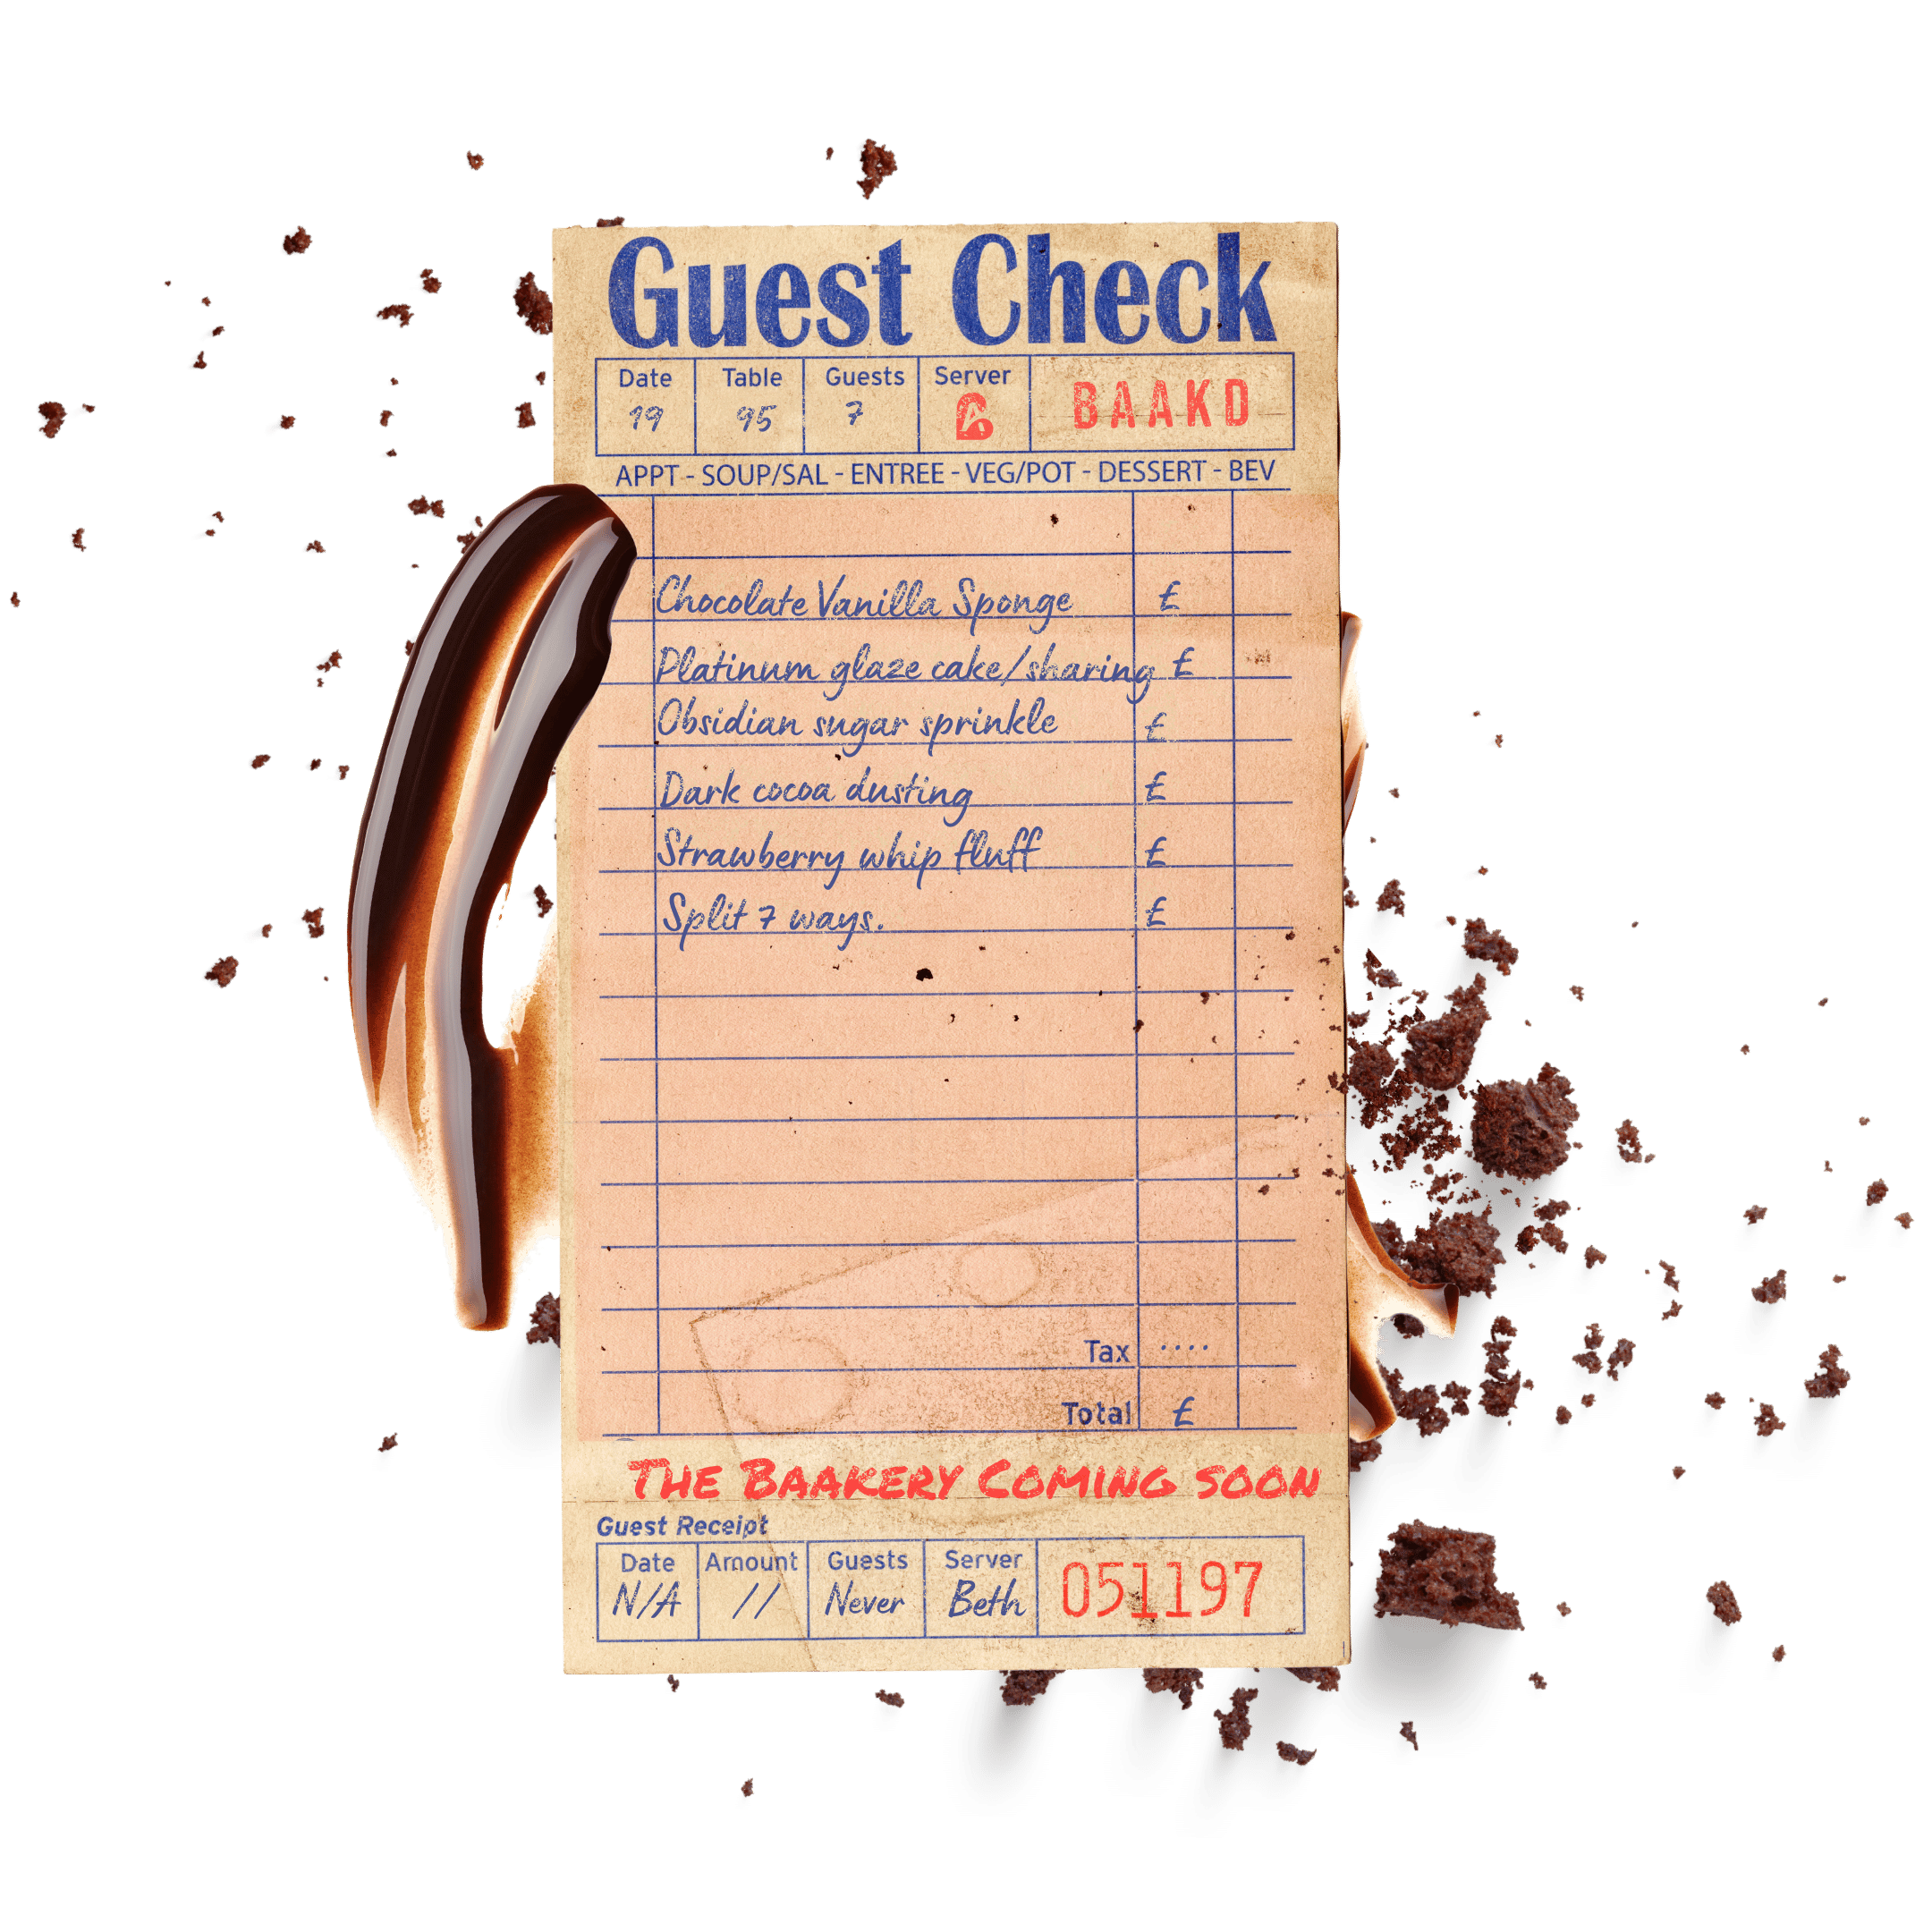 Guest Check
Date Table Guests Server
19 95 7 BAAKD
APPT - SOUP/SAL - ENTREE - VEG/POT - DESSERT - BEV
Chocolate Vanilla Sponge £
Platinum glaze cake/sharing £
Obsidian sugar sprinkle £
Dark cocoa dusting £
Strawberry whip fluff £
Split 7 ways. £
Tax ....
Total £
The Baakery Coming soon
Guest Receipt
Date Amount Guests Server
N/A // Never Beth 051197